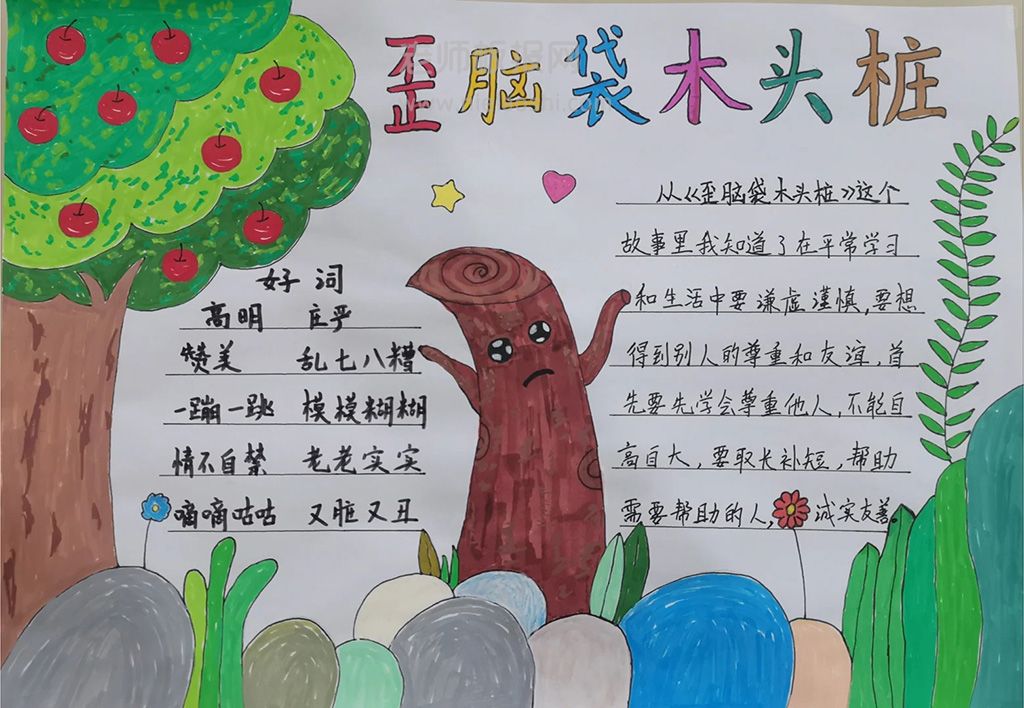 歪脑袋木头桩
从《歪脑袋木头桩》这个
故事里我知道了在平常学习
和生活中要谦虚谨慎,要想
得到别人的尊重和友谊,首
先要先学会尊重他人,不能自
高自大,要取长补短,帮助
需要帮助的人,诚实友善。
好词
高明 庄严
赞美 乱七八糟
一蹦一跳 模模糊糊
情不自禁 老老实实
嘀嘀咕咕 又脏又丑